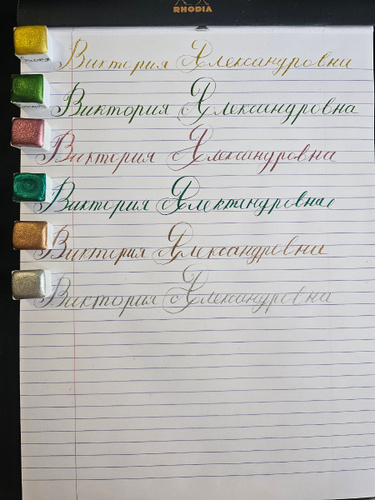 RHODIA
Виктория Александровна
Виктория Александровна
Виктория Александровна
Виктория Александровна
Виктория Александровна
Виктория Александровна